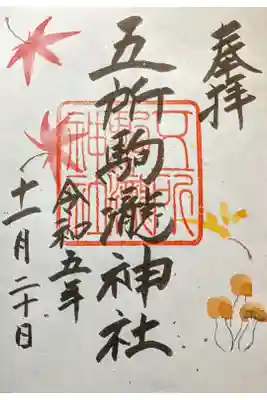 奉拝
五所駒瀧神社
令和五年
十一月二十日